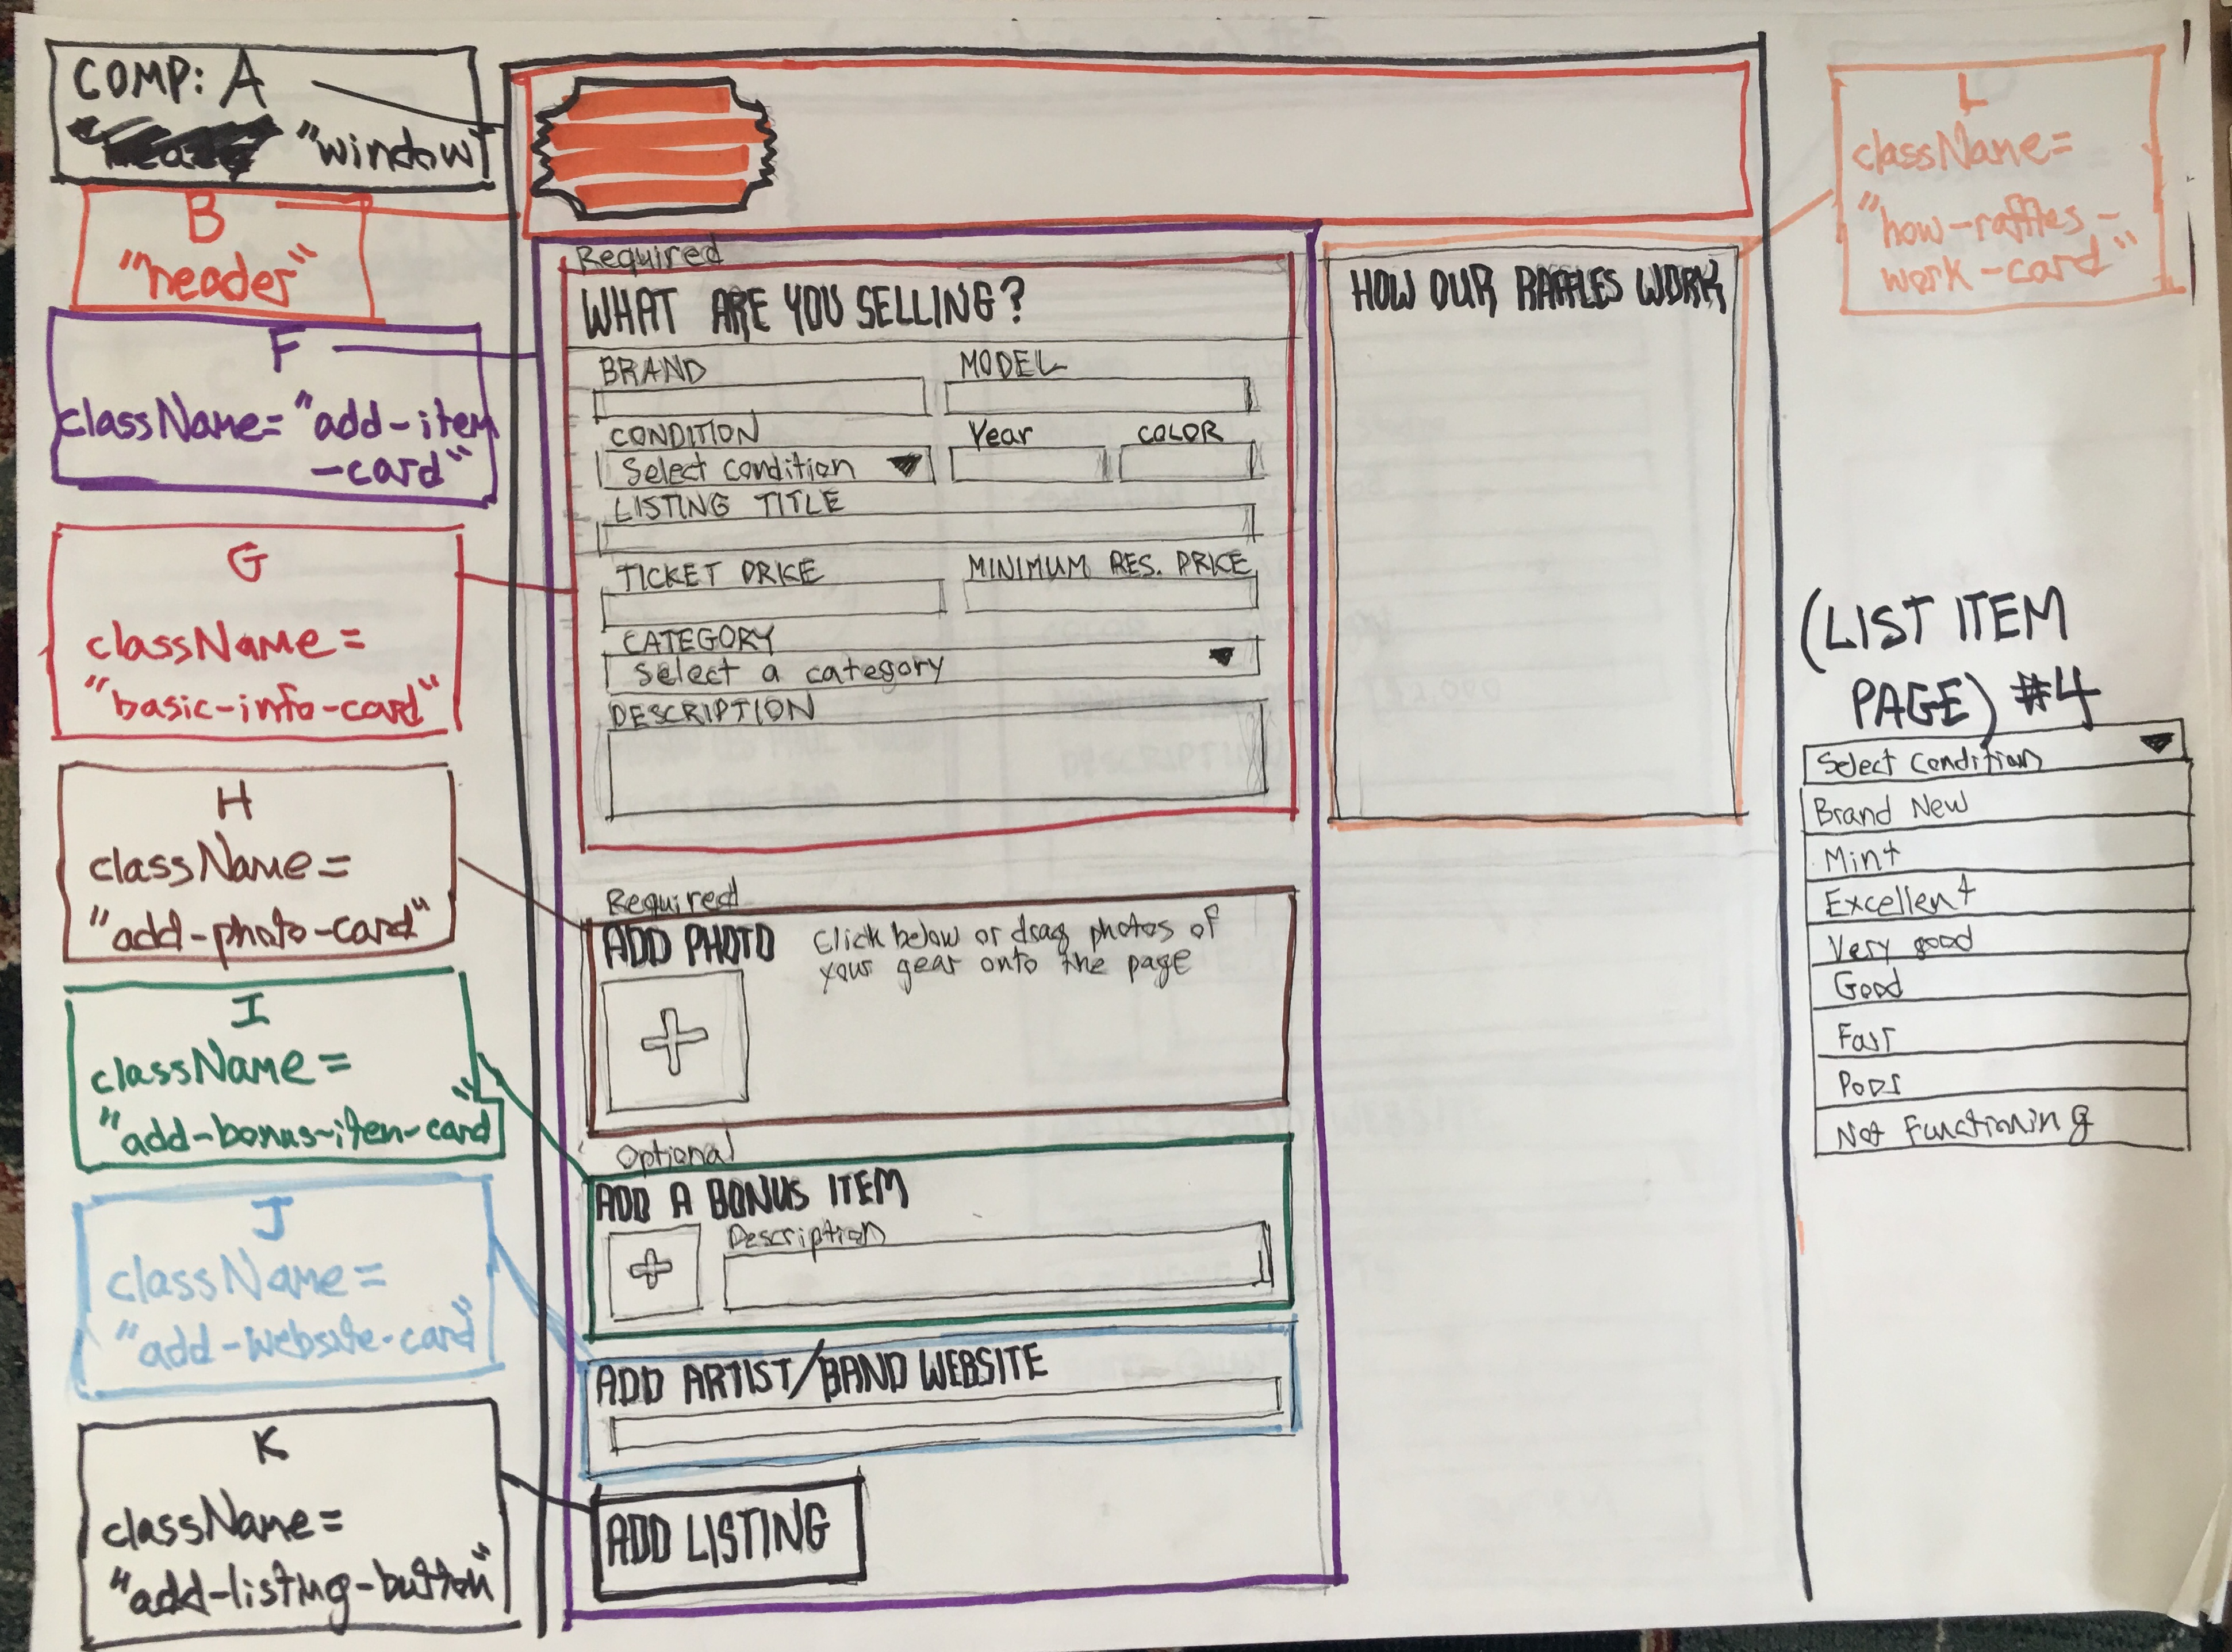 COMP: A
"window
B
"header"
F
className= "add-item
-card"
G
className=
"basic-info-card"
H
className=
"add-photo-card"
I
className=
"add-bonus-item-card"
J
className=
"add-website-card"
K
className=
"add-listing-button"
Required
WHAT ARE YOU SELLING?
BRAND MODEL
CONDITION Year COLOR
Select Condition
LISTING TITLE
TICKET PRICE MINIMUM RES. PRICE
CATEGORY
Select a category
DESCRIPTION
Required
ADD PHOTO Click below or drag photos of
your gear onto the page
Optional
ADD A BONUS ITEM
Description
ADD ARTIST/BAND WEBSITE
ADD LISTING
HOW OUR RAFFLES WORK
L
className=
"how-raffles-
work-card"
(LIST ITEM
PAGE) #4
Select Condition
Brand New
Mint
Excellent
Very good
Good
Fair
Poor
Not Functioning